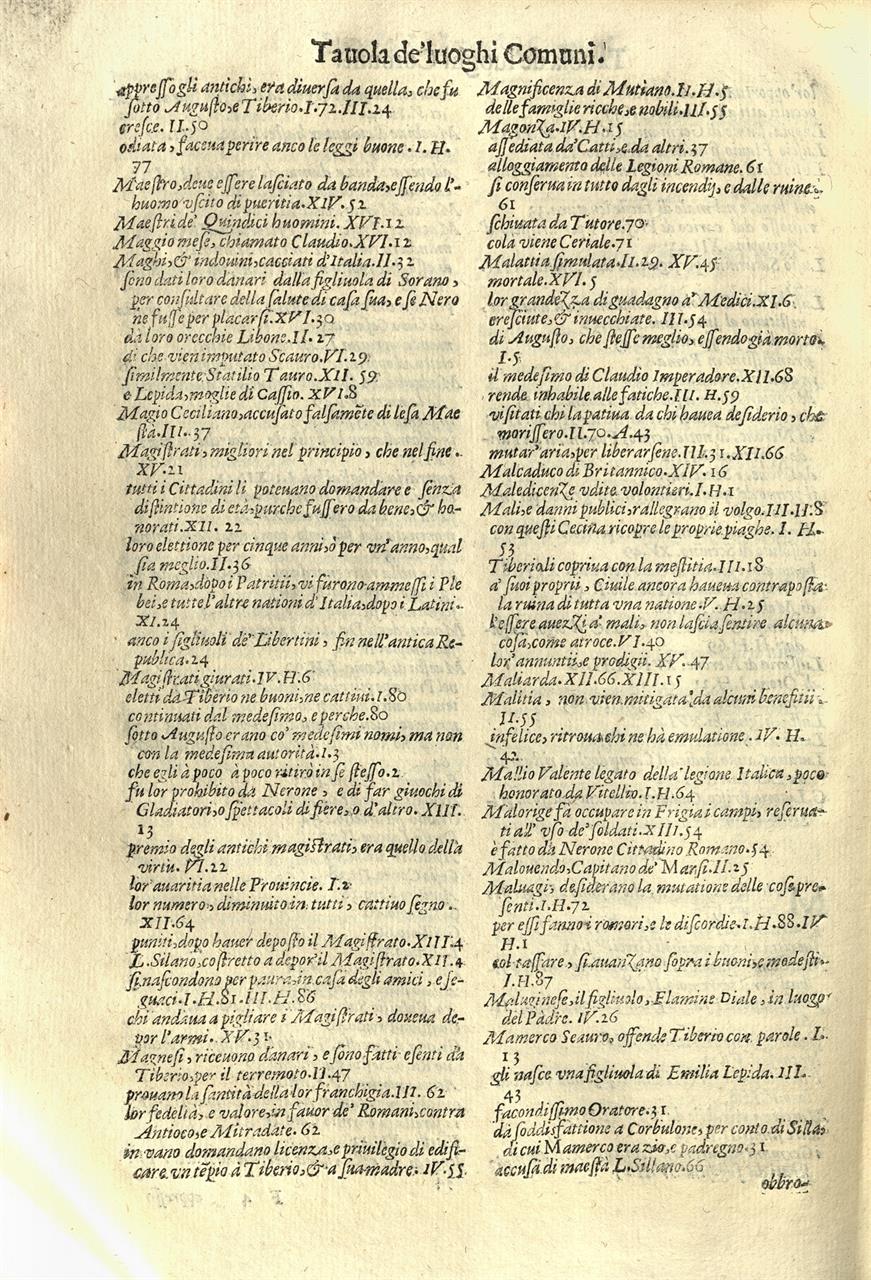 Tauola de' luoghi Comuni.
appresso gli antichi, era diuersa da quella, che fu
sotto Augusto, e Tiberio. I. 72. III. 24
cresce. II. 50
odiata, faceua perire anco le leggi buone. I. H.
77
Maestro, deue essere lasciato da banda, essendo l'-
huomo vscito di pueritia. XIV. 52
Maestri de' Quindici huomini. XVI. 12
Maggio mese, chiamato Claudio. XVI. 12
Maghi, & indouini, cacciati d'Italia. II. 32
sono dati loro danari dalla figliuola di Sorano,
per consultare della salute di casa sua, e se Nero
ne fusse per placarsi. XVI. 30
dà loro orecchie Libone. II. 27
di che vien imputato Scauro. VI. 29
similmente Statilio Tauro. XII. 59
e Lepida, moglie di Cassio. XVI. 8
Magio Ceciliano, accusato falsamẽte di lesa Mae
stà. III. 37
Magistrati, migliori nel principio, che nel fine.
XV. 21
tutti i Cittadini li poteuano domandare e senza
distintione di età, purche fussero da bene, & ho-
norati. XII. 22
loro elettione per cinque anni, ò per vn'anno, qual
sia meglio. II. 36
in Roma, dopo i Patritii, vi furono ammessi i Ple
bei, e tutte l'altre nationi d'Italia, dopo i Latini.
XI. 24
anco i figliuoli de' Libertini, fin nell'antica Re-
publica. 24
Magistrati giurati. IV. H. 6
eletti da Tiberio ne buoni, ne cattiui. I. 80
continuati dal medesimo, e perche. 80
sotto Augusto erano co' medesimi nomi, ma non
con la medesima autorità. I. 3
che egli à poco à poco ritirò in se stesso. 2
fu lor prohibito da Nerone, e di far giuochi di
Gladiatori, o spettacoli di fiere, o d'altro. XIII.
13
premio degli antichi magistrati, era quello della
virtù. VI. 22
lor auaritia nelle Prouincie. I. 2
lor numero, diminuito in tutti, cattiuo segno.
XII. 64
puniti, dopo hauer deposto il Magistrato. XIII. 4
L. Silano, costretto a depor'il Magistrato. XII. 4
si nascondono per paura, in casa degli amici, e se-
guaci. I. H. 81. III. H. 86
chi andaua a pigliare i Magistrati, doueua de-
por l'armi. XV. 31
Magnesi, riceuono danari, e sono fatti esenti da
Tiberio, per il terremoto. II. 47
prouano la santità della lor franchigia. III. 62
lor fedeltà, e valore, in fauor de' Romani, contra
Antioco, e Mitradate. 62
in vano domandano licenza, e priuilegio di edifi-
care vn tẽpio à Tiberio, & a sua madre. IV. 55
Magnificenza di Mutiano. II. H. 5
delle famiglie ricche, e nobili. III. 55
Magonza. IV. H. 15
assediata da' Catti, e da altri. 37
alloggiamento delle Legioni Romane. 61
si conserua in tutto dagli incendij, e dalle ruine.
61
schiuata da Tutore. 70
cola viene Ceriale. 71
Malattia simulata. II. 29. XV. 45
mortale. XVI. 5
lor grandezza di guadagno a' Medici. XI. 6
cresciute, & inuecchiate. III. 54
di Augusto, che stesse meglio, essendo già morto.
I. 5
il medesimo di Claudio Imperadore. XII. 68
rende inhabile alle fatiche. III. H. 59
visitati chi la patiua da chi hauea desiderio, che
morissero. II. 70. A. 43
mutar'aria, per liberarsene. III. 31. XII. 66
Malcaduco di Britannico. XIV. 16
Maledicenze vdite volontieri. I. H. 1
Mali, e danni publici, rallegrano il volgo. III. H. 8
con questi Cecina ricopre le proprie piaghe. I. H.
53
Tiberio li copriua con la mestitia. III. 18
a' suoi proprii, Ciuile ancora haueua contraposta
la ruina di tutta vna natione. V. H. 25
l'essere auezzi a' mali, non lascia sentire alcuna
cosa, come atroce. VI. 40
lor'annuntii, e prodigii. XV. 47
Maliarda. XII. 66. XIII. 15
Malitia, non vien mitigata da alcuni benefitii.
II. 55
infelice, ritroua chi ne hà emulatione. IV. H.
42
Mallio Valente legato della legione Italica, poco
honorato da Vitellio. I. H. 64
Malorige fà occupare in Frigia i campi, reserua-
ti all'vso de' soldati. XIII. 54
è fatto da Nerone Cittadino Romano. 54
Malouendo, Capitano de' Marsi. II. 25
Maluagi, desiderano la mutatione delle cose pre-
senti. I. H. 72
per essi fanno i romori, e le discordie. I. H. 88. IV
H. 1
col tassare, si auanzano sopra i buoni, e modesti.
I. H. 87
Maluginese, il figliuolo, Flamine Diale, in luogo
del Padre. IV. 26
Mamerco Scauro, offende Tiberio con parole. I.
13
gli nasce vna figliuola di Emilia Lepida. III.
43
facondissimo Oratore. 31
dà soddisfattione a Corbulone, per conto di Silla,
di cui Mamerco era zio, e padregno. 31
accusa di maestà L. Sillano. 66
obbro-